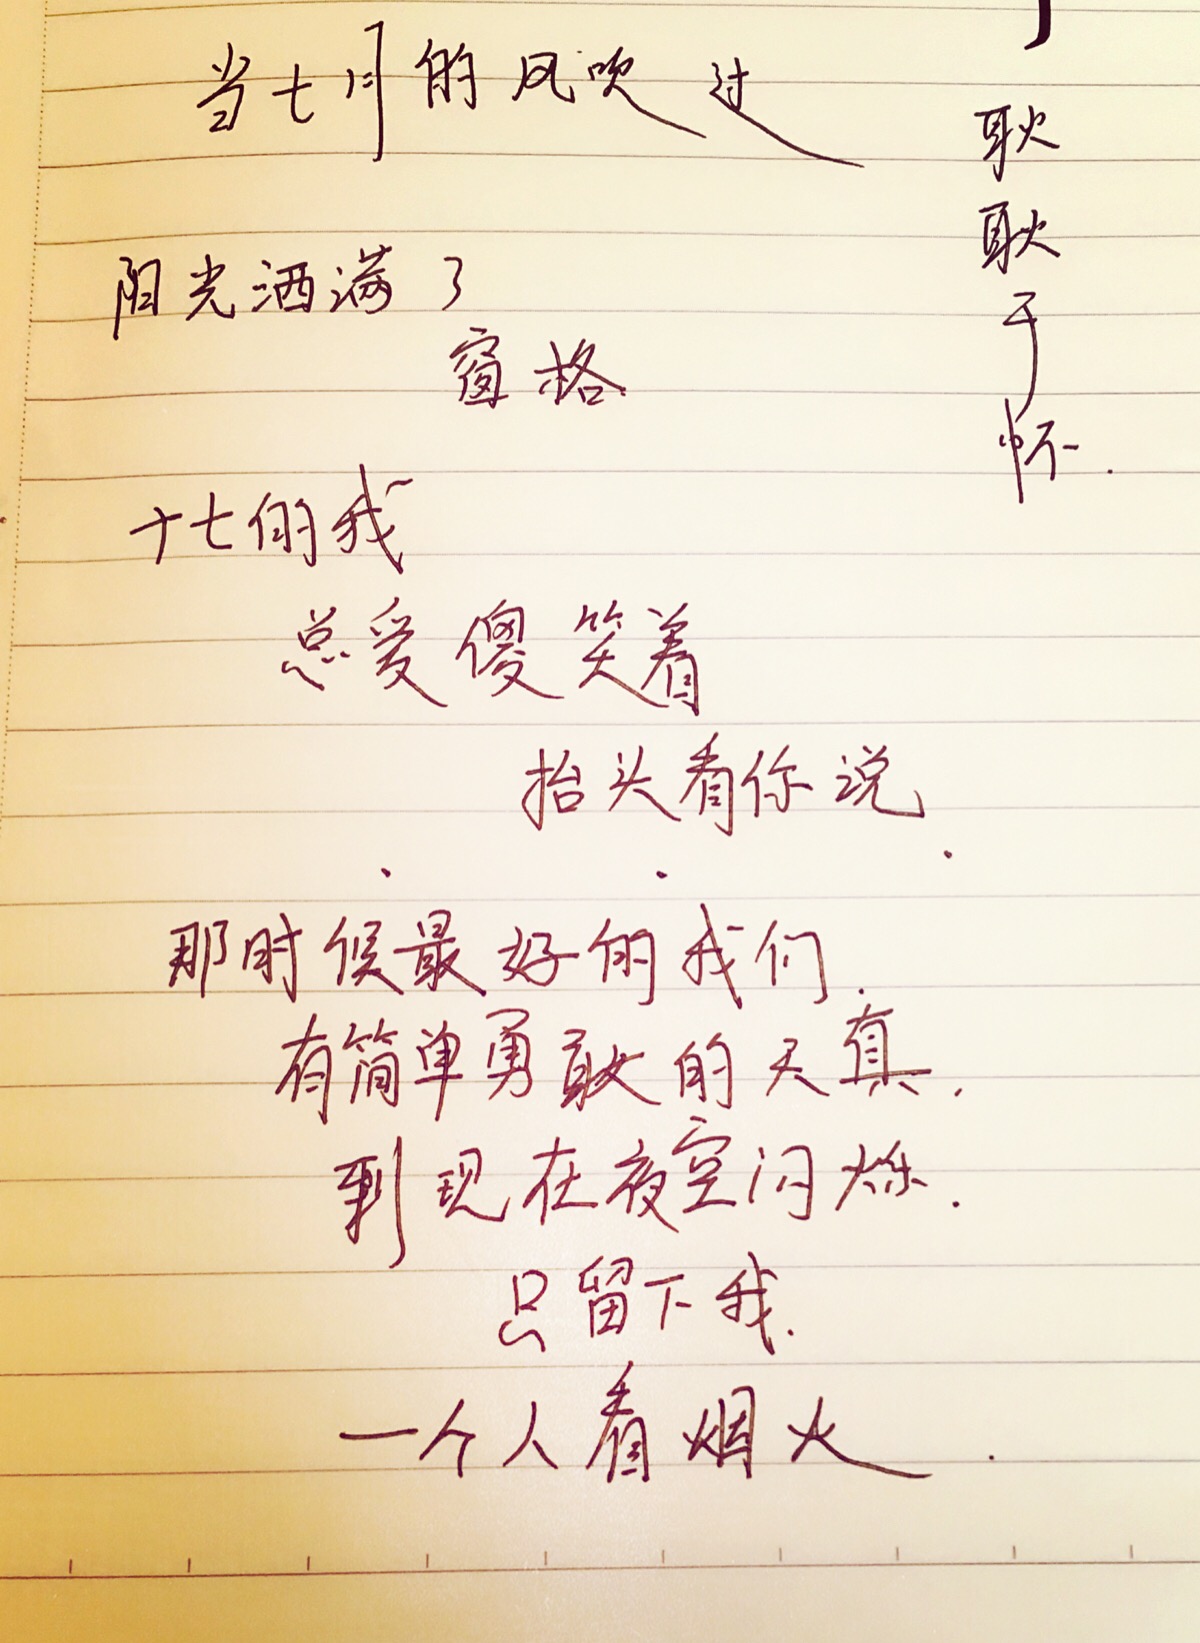 当七月的风吹过
阳光洒满了
窗格
十七的我
总爱傻笑着
抬头看你说
. . .
那时候最好的我们.
有简单勇敢的天真.
到现在夜空闪烁.
只留下我.
一个人看烟火.
耿
耿
于
怀.